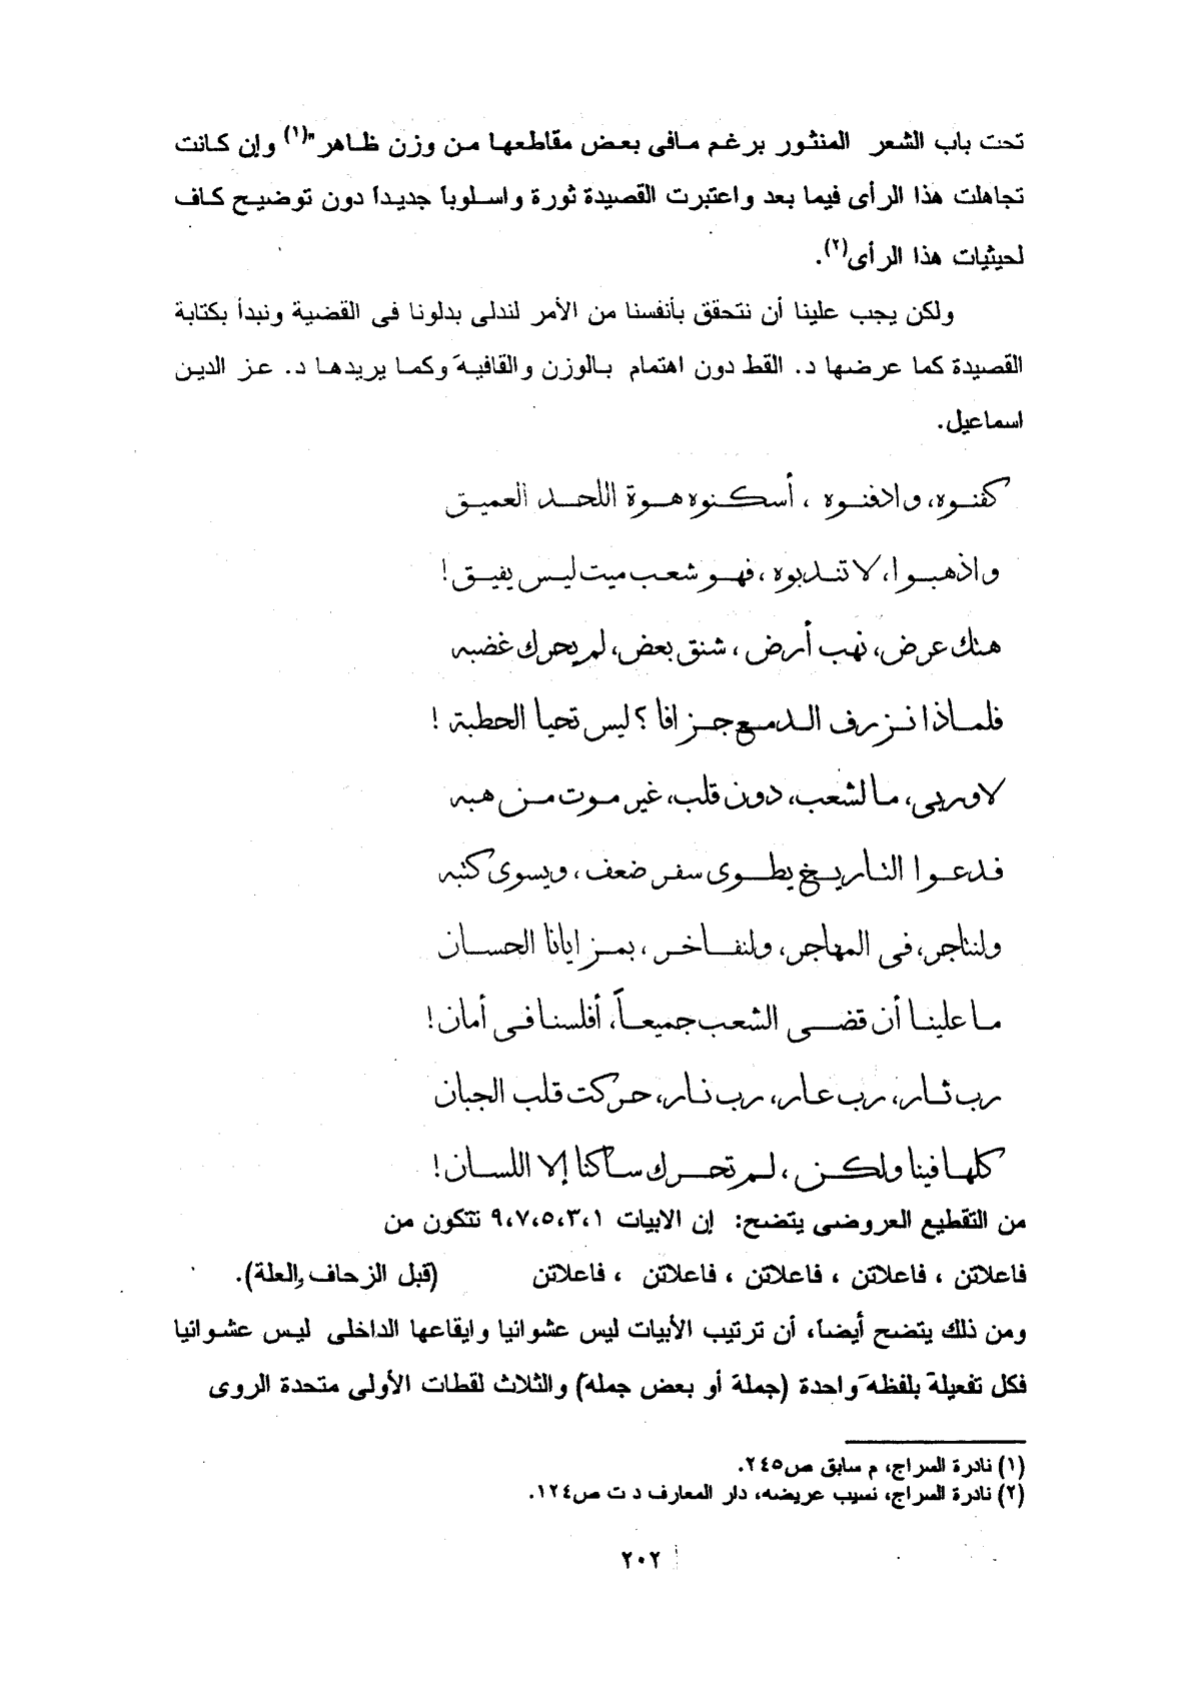 تحت باب الشعر المنثور برغم مافى بعض مقاطعها من وزن ظاهر"(١) وإن كانت
تجاهلت هذا الرأى فيما بعد واعتبرت القصيدة ثورة واسلوباً جديداً دون توضيح كاف
لحيثيات هذا الرأى(٢).
ولكن يجب علينا أن نتحقق بأنفسنا من الأمر لندلى بدلونا فى القضية ونبدأ بكتابة
القصيدة كما عرضها د. القط دون اهتمام بالوزن والقافية وكما يريدها د. عز الدين
اسماعيل.
كفنوه، وادفنوه ، أسكنوه هوة اللحد العميق
واذهبوا، لا تندبوه ، فهو شعب ميت ليس يفيق !
هتك عرض، نهب أرض ، شنق بعض، لم يحرك غضبه
فلماذا نزرف الدمع جزافا ؟ ليس تحيا الحطبة !
لا وربى، ما لشعب، دون قلب، غير موت من هبه
فدعوا التاريخ يطوى سفر ضعف ، ويسوى كتبه
ولنتاجر، فى المهاجر، ولنفاخر ، بمزايانا الحسان
ما علينا أن قضى الشعب جميعاً، أفلسنا فى أمان !
رب ثار، رب عار، رب نار، حركت قلب الجبان
كلها فينا ولكن ، لم تحرك ساكنا إلا اللسان !
من التقطيع العروضى يتضح: إن الابيات ٩،٧،٥،٣،١ تتكون من
فاعلاتن ، فاعلاتن ، فاعلاتن ، فاعلاتن ، فاعلاتن (قبل الزحاف والعلة).
ومن ذلك يتضح أيضاً، أن ترتيب الأبيات ليس عشوانيا وايقاعها الداخلى ليس عشوانيا
فكل تفعيلة بلفظه واحدة (جملة أو بعض جمله) والثلاث لقطات الأولى متحدة الروى
(١) نادرة السراج، م سابق ص٢٤٥.
(٢) نادرة السراج، نسيب عريضه، دار المعارف د ت ص١٢٤.
٢٠٢